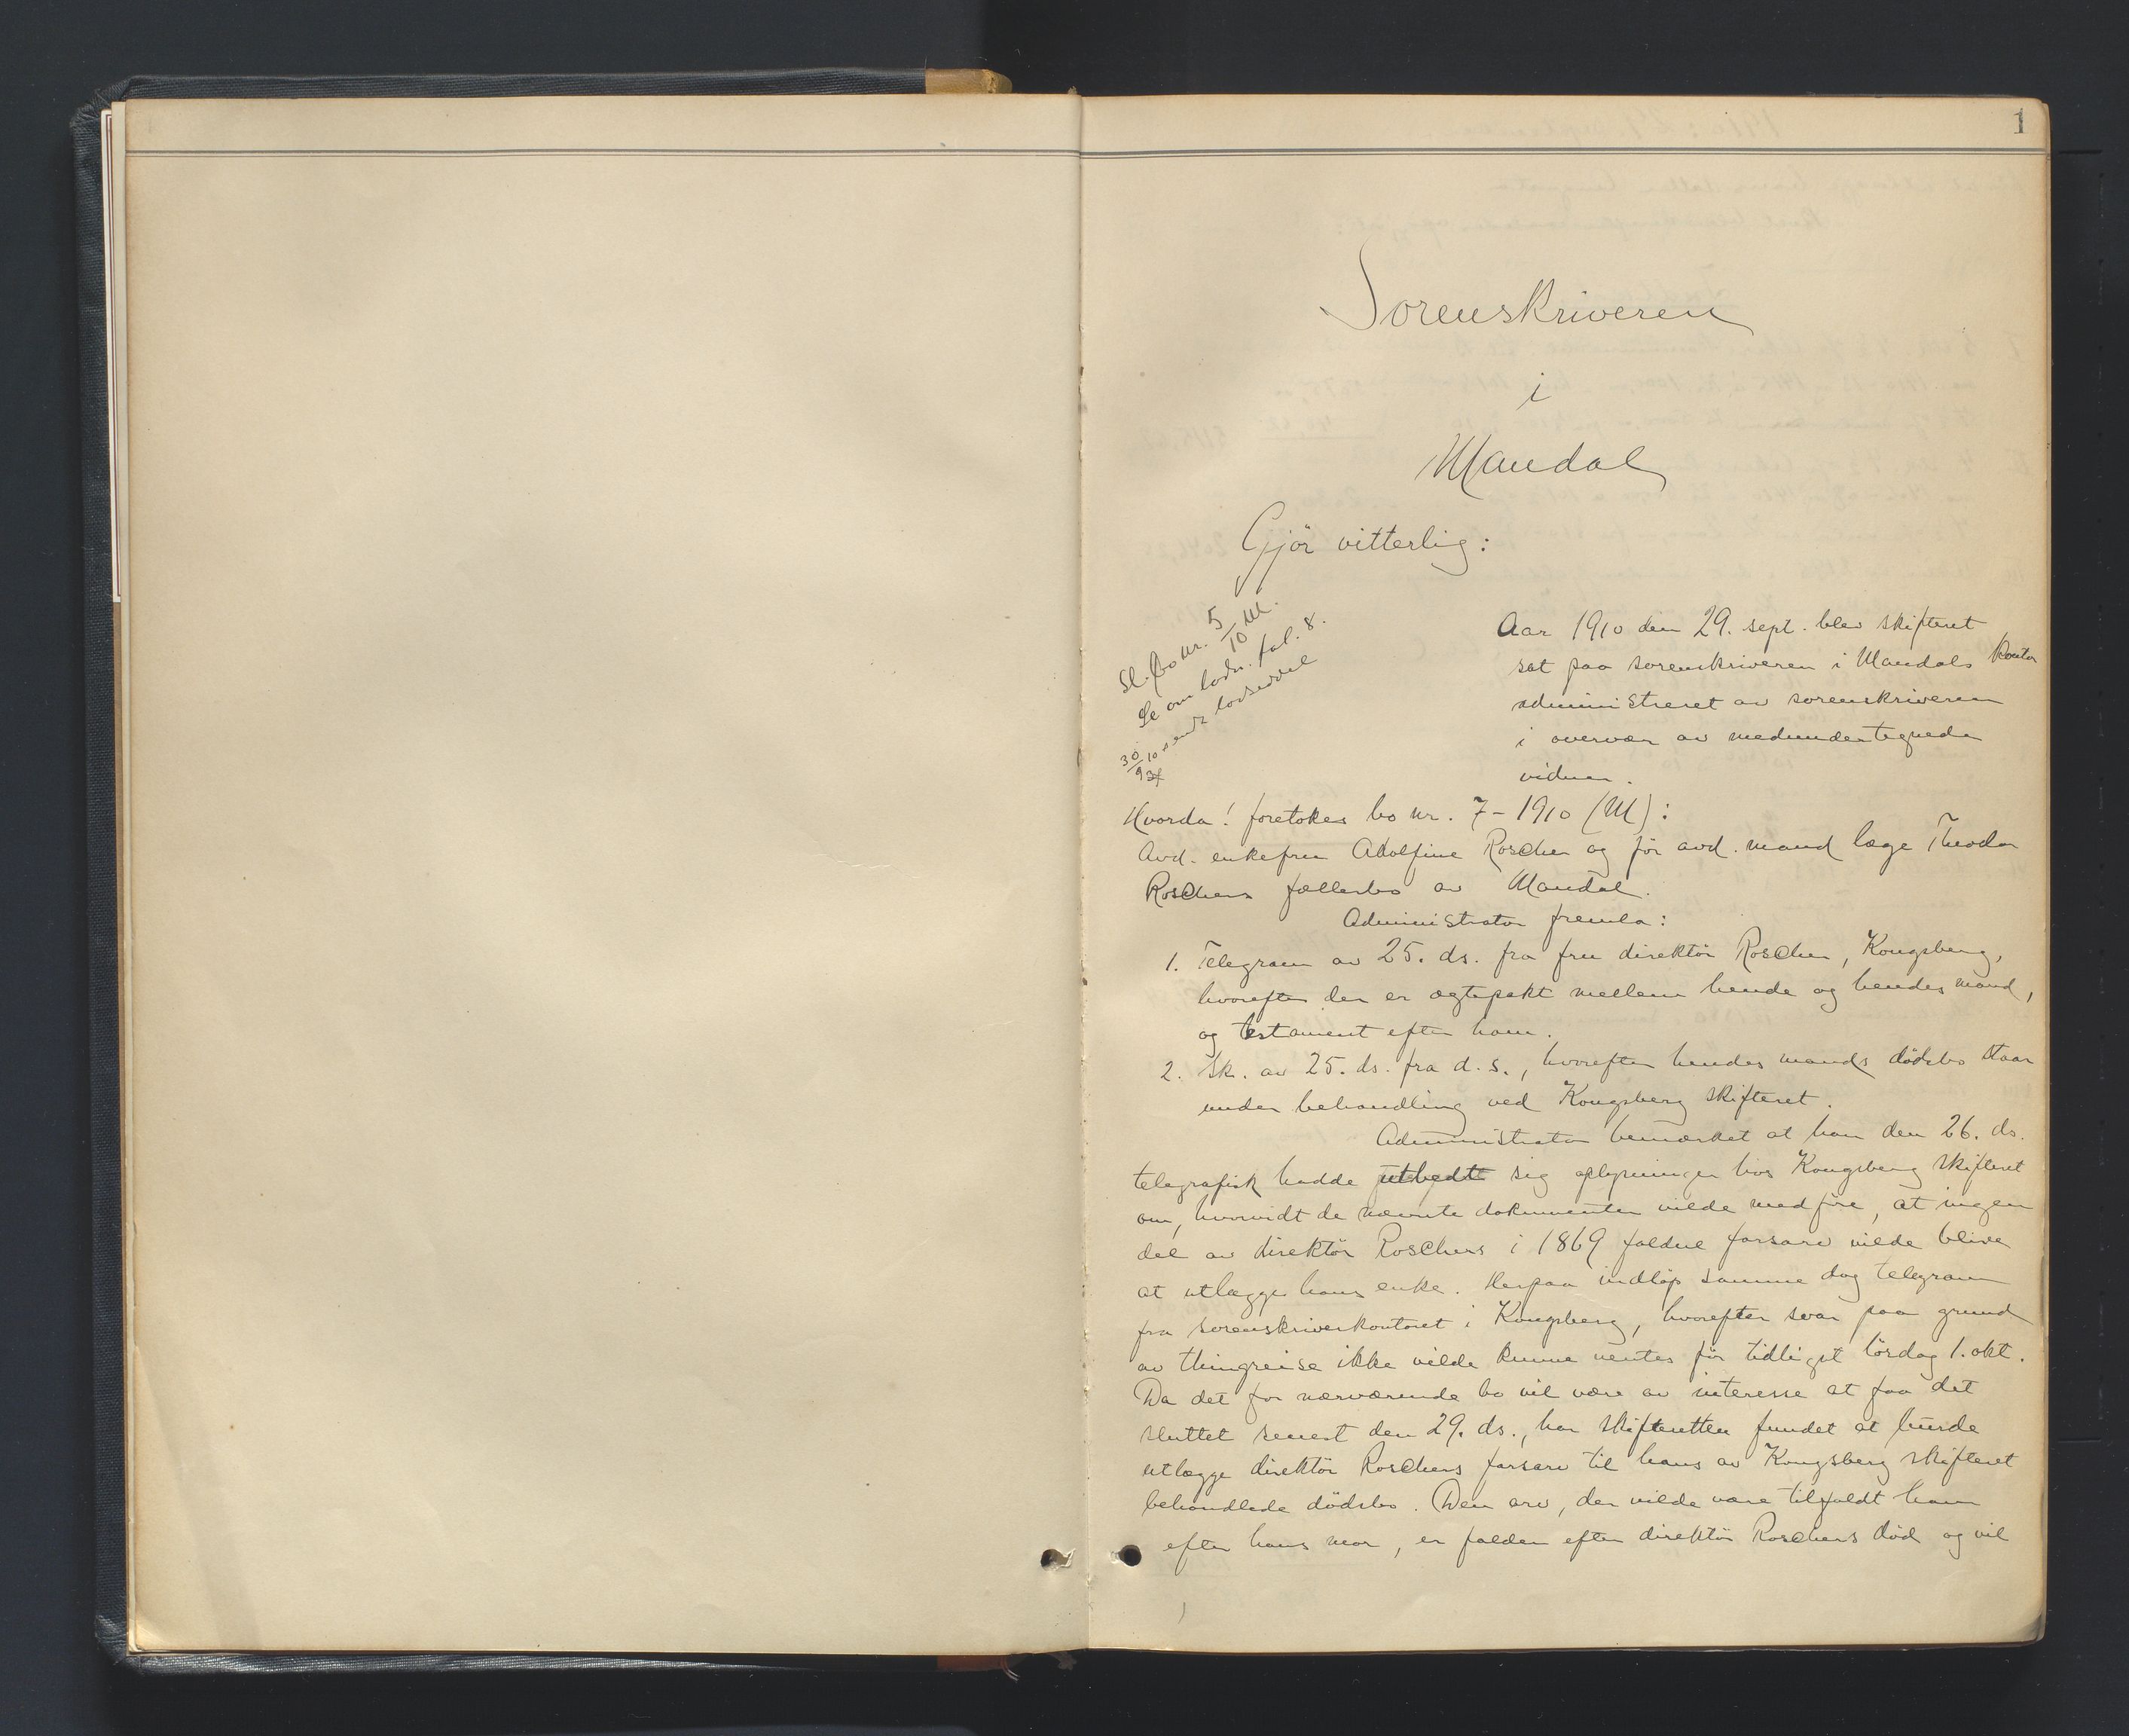 1
Sorenskriveren
i
Mandal
Gjör vitterlig:
Sl. bo nr. 5/10 M.
Se om lodn. fol. 8.
30/9 10 sendt lodseddel
Aar 1910 den 29. sept. blev skifteret
sat paa sorenskriveren i Mandals kontor
administreret av sorenskriveren
i overvær av medundertegnede
vidner.
Hvorda! foretokes bo nr. 7 - 1910 (M):
Avd. enkefru Adolfine Roscher og för avd. mand læge Theodor
Roschers fællesbo av Mandal.
Administrator fremla:
1. Telegram av 25. ds. fra fru direktör Roscher, Kongsberg,
hvorefter der er ægtepakt mellem hende og hendes mand,
og testament efter ham.
2. Sk. av 25. ds. fra d. s., hvorefter hendes mands dödsbo staar
under behandling ved Kongsberg skifteret.
Administrator bemærket at han den 26. ds.
telegrafisk hadde utbedt sig oplysninger hos Kongsberg skifteret
om, hvorvidt de nævnte dokumenter vilde medföre, at ingen
del av direktör Roschers i 1869 faldne farsarv vilde blive
at utlægge hans enke. Herpaa indlöp samme dag telegram
fra sorenskriverkontoret i Kongsberg, hvorefter svar paa grund
av thingreise ikke vilde kunne ventes för tidligst lördag 1. okt.
Da det for nærværende bo vil være av interesse at faa det
sluttet senest den 29. ds., har skifteretten fundet at burde
utlægge direktör Roschers farsarv til hans av Kongsberg skifteret
behandlede dödsbo. Den arv, der vilde være tilfaldt ham
efter hans mor, er falden efter direktör Roschers död og vil